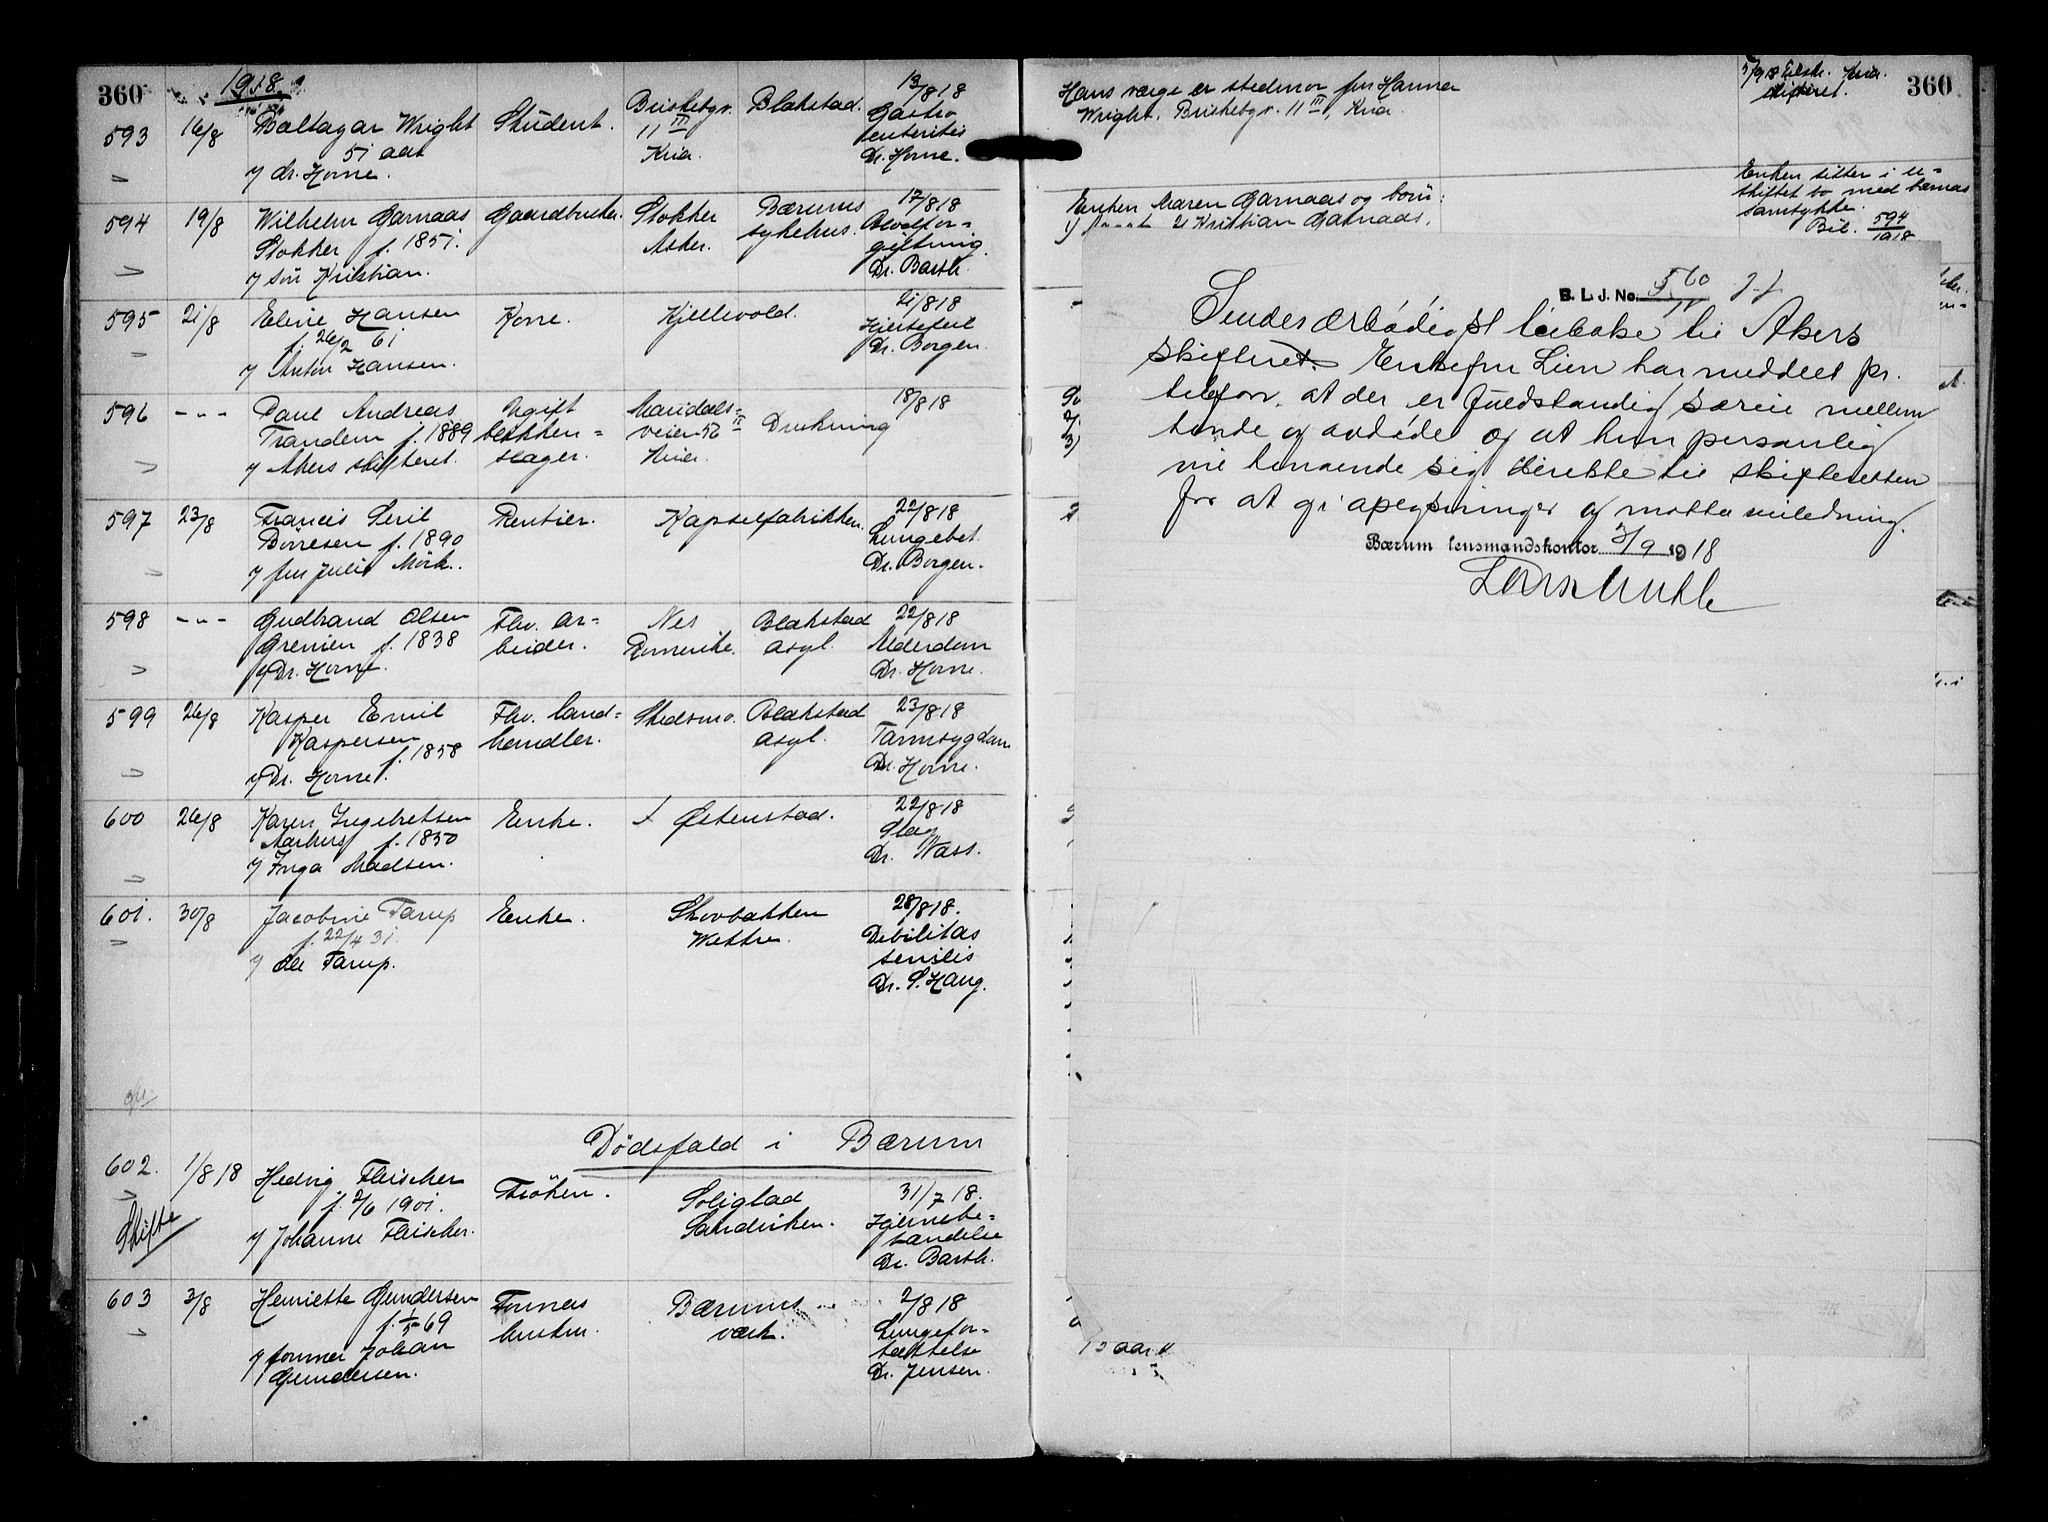 360
1918
593
16/8
Baltazar Wright
51 aar
v/ dr. Horne.
Student.
Briskebgr.
11 III
Kria.
Blakstad.
13/8 18
Gastro
enteritis
Dr. Horne.
594
19/8
Wilhelm Garnaas
Stokker f. 1851.
v/ søn Kristian.
Gaardbruker.
Stokker
Asker.
Bærums
sykehus.
17/8 18
Blodfor-
giftning
Dr. Barth.
595
21/8
Eline Hansen
f. 26/2 61
v/ Anton Hansen.
Kone.
Kjellevold.
21/8 18
Hjertefeil
Dr. Borgen.
596
-"-
Paul Andreas
Trandem f. 1889
v/ Akers skifteret.
Ugift
blikken-
slager.
Maridals-
veien 56 II
Kria.
Drukning
18/8 18
597
23/8
Francis Seril
Börresen f. 1890
v/ fru Julie Mörk.
Rentier.
Kapselfabrikken.
22/8 18
Lungebet.
Dr. Borgen.
598
-"-
Gudbrand Olsen
Grenien f. 1838
v/ Dr. Horne.
Fhv. ar-
beider.
Nes
Romerike.
Blakstad
asyl.
22/8 18
Alderdom
Dr. Horne.
599
26/8
Kasper Emil
Kaspersen
f. 1858
v/ Dr. Horne.
Fhv. land-
handler.
Skedsmo.
Blakstad
asyl.
23/8 18
Tarmsygdom
Dr. Horne.
600
26/8
Karen Ingebretsen
Aarhus f. 1850
v/ Inga Madsen.
Enke.
Østenstad.
22/8 18
Slag
Dr. Wass.
601.
30/8
Jacobine Tarup
f. 22/4 31.
v/ Ole Tarup.
Enke.
Skovbakken
Wettre.
28/8 18.
Debilitas
senilis
Dr. S. Haug.
Dödsfald i Bærum
602.
1/8 18
Skifte
Hedvig Fleischer
f. 2/6 1901.
v/ Johanne Fleischer.
Fröken.
Soliglad
Sandviken.
31/7 18.
Hjernebe-
tændelse
Dr. Barth.
603
3/8
Henriette Gundersen
f. 1/5 69
v/ former Johan
Gundersen.
Formers
hustru.
Bærums
verk.
2/8 18
Lungefor-
tættelse
Dr. Jensen.
360
Hans værge er stedmor fru Hanna
Wright, Briskebgr. 11 III, Kria.
5/9 18 Tilstr. Kria.
skifteret.
Enken Maren Garnaas og born:
2) Kristian Garnaas.
Enken sitter i u-
skiftet bo med barnas
samtykke.
Bil. 594/1918
B. L. J. No. 560
Sendes ærbødigst tilbake til Akers
skifteret. Enkefru Lien har meddelt pr.
telefon, at der er fuldstændig særeie mellem
hende og avdøde og at hun personlig
vil henvende sig direkte til skifteretten
for at gi opplysninger og motta veiledning.
Bærum lensmandskontor 3/9 1918
15 aar